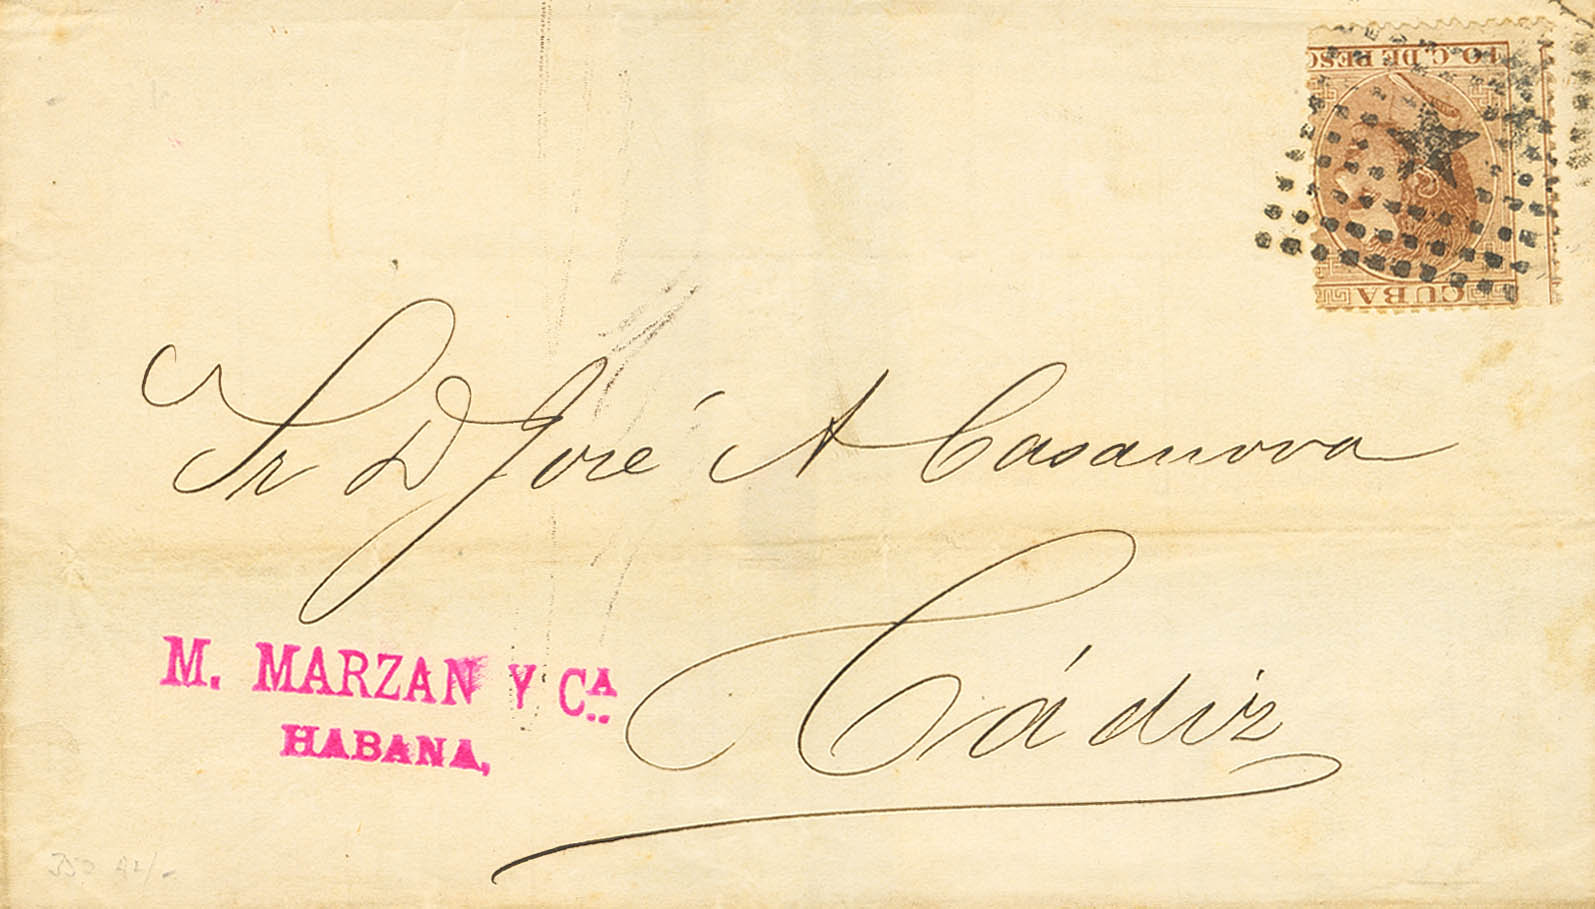 10 C. DE PESO
CUBA
Sr D José A Casanova
Cádiz
M. MARZAN Y CA.
HABANA,